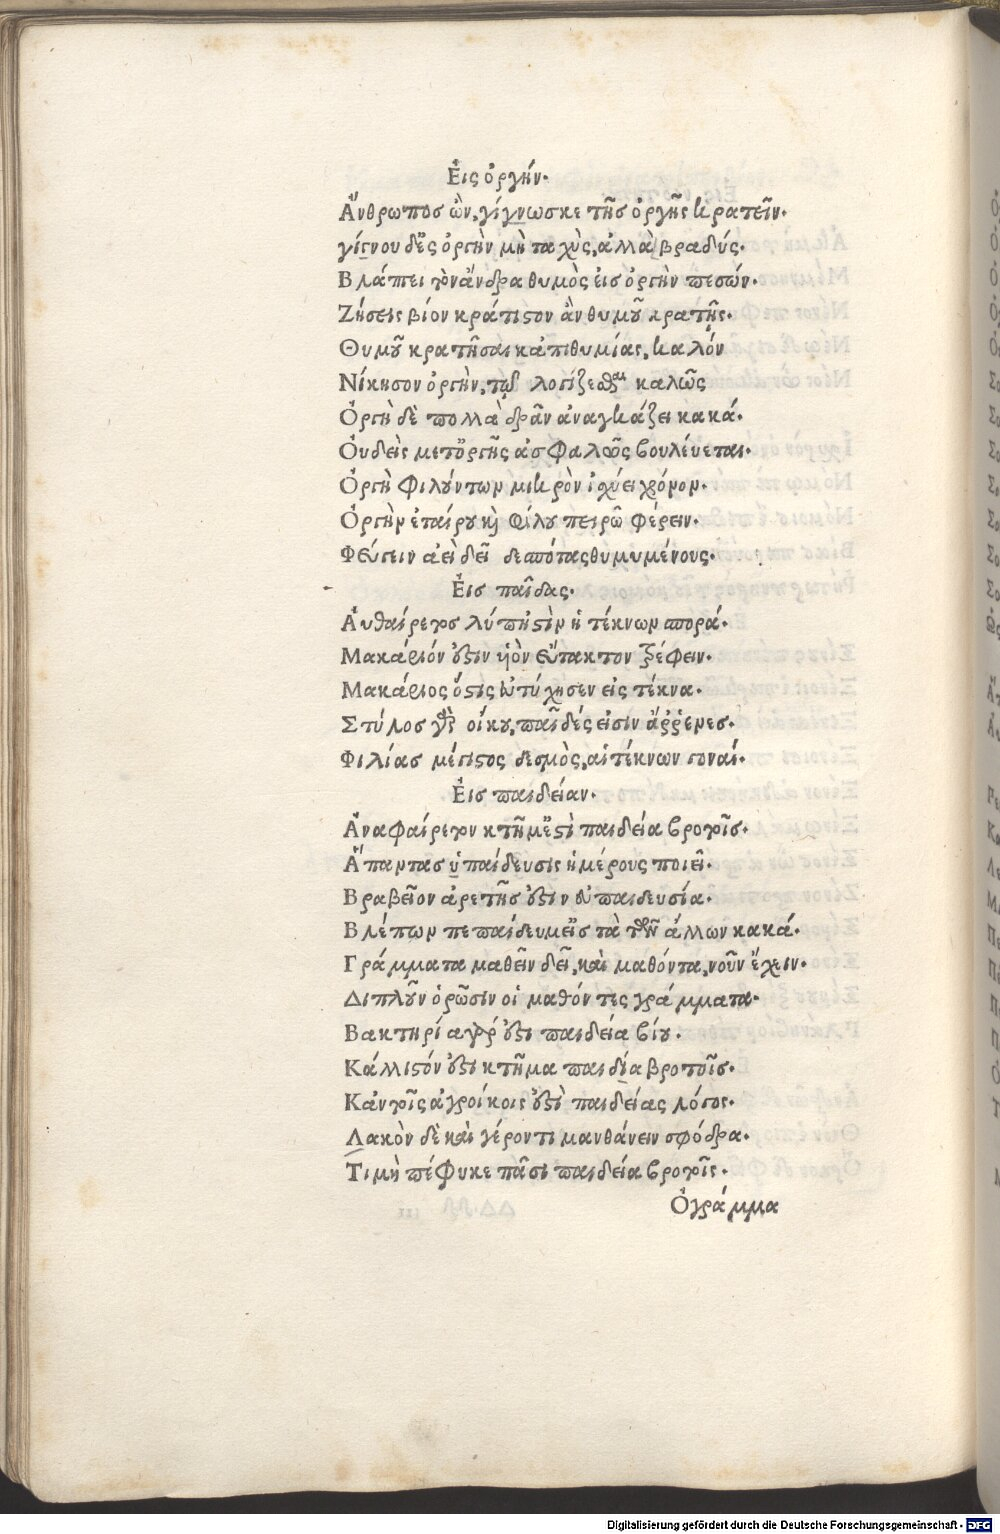 Εἰς ὀργήν.
Ἄνθρωπος ὢν, γίγνωσκε τῆς ὀργῆς κρατεῖν.
γίγνου δ' εἰς ὀργὴν μὴ ταχὺς, ἀλλὰ βραδύς.
Βλάπτει τὸν ἄνδρα θυμὸς εἰς ὀργὴν πεσών.
Ζήσεις βίον κράτιστον ἂν θυμοῦ κρατῇς.
Θυμοῦ κρατῆσαι κἀπιθυμίας, καλόν
Νίκησον ὀργὴν, τῷ λογίζεσθαι καλῶς
Ὀργὴ δὲ πολλὰ δρᾶν ἀναγκάζει κακά.
Οὐδεὶς μετ' ὀργῆς ἀσφαλῶς βουλέυεται.
Ὀργὴ φιλούντων μικρὸν ἰσχύει χρόνον.
Ὀργὴν ἑταίρου καὶ φίλου πειρῶ φέρειν.
Φεύγειν ἀεὶ δεῖ δεσπότας θυμουμένους.
Εἰς παῖδας.
Ἀυθαίρετος λύπη ἐστὶν ἡ τέκνων σπορά.
Μακάριόν ἐστιν υἱὸν εὔτακτον τρέφειν.
Μακάριος ὅστις εὐτύχησεν εἰς τέκνα.
Στύλος γὰρ οἴκου, παῖδές εἰσιν ἄῤῥενες.
Φιλίας μέγιστος δεσμὸς, αἱ τέκνων γοναί.
Εἰς παιδείαν.
Ἀναφαίρετον κτῆμ' ἐστὶ παιδεία βροτοῖς.
Ἅπαντας ἡ παίδευσις ἡμέρους ποιεῖ.
Βραβεῖον ἀρετῆς ἐστιν εὐπαιδευσία.
Βλέπων πεπαίδευμ' εἰς τὰ τῶν ἄλλων κακά.
Γράμματα μαθεῖν δεῖ, καὶ μαθόντα, νοῦν ἔχειν.
Διπλοῦν ὁρῶσιν οἱ μαθόν τες γράμματα.
Βακτηρία γάρ ἐστι παιδεία βίου.
Κάλλιστόν ἐστι κτῆμα παιδία βροτοῖς.
Κἀν τοῖς ἀγροίκοις ἐστὶ παιδείας λόγος.
Λακὸν δὲ καὶ γέροντι μανθάνειν σφόδρα.
Τιμὴ πέφυκε πᾶσι παιδεία βροτοῖς.
Ὁ γράμμα
Digitalisierung gefördert durch die Deutsche Forschungsgemeinschaft - DFG